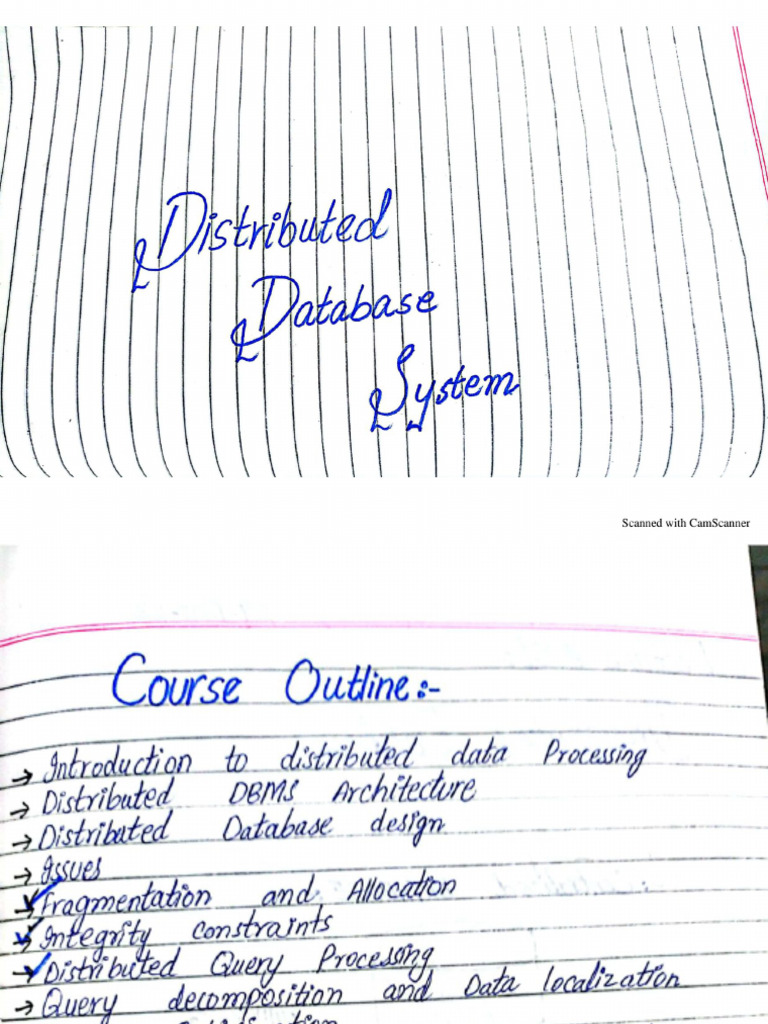 Distributed
Database
System
Scanned with CamScanner
Course Outline:-
→ Introduction to distributed data Processing
→ Distributed DBMS Architecture
→ Distributed Database design
→ Issues
→ Fragmentation and Allocation
→ Integrity constraints
→ Distributed Query Processing
→ Query decomposition and Data localization